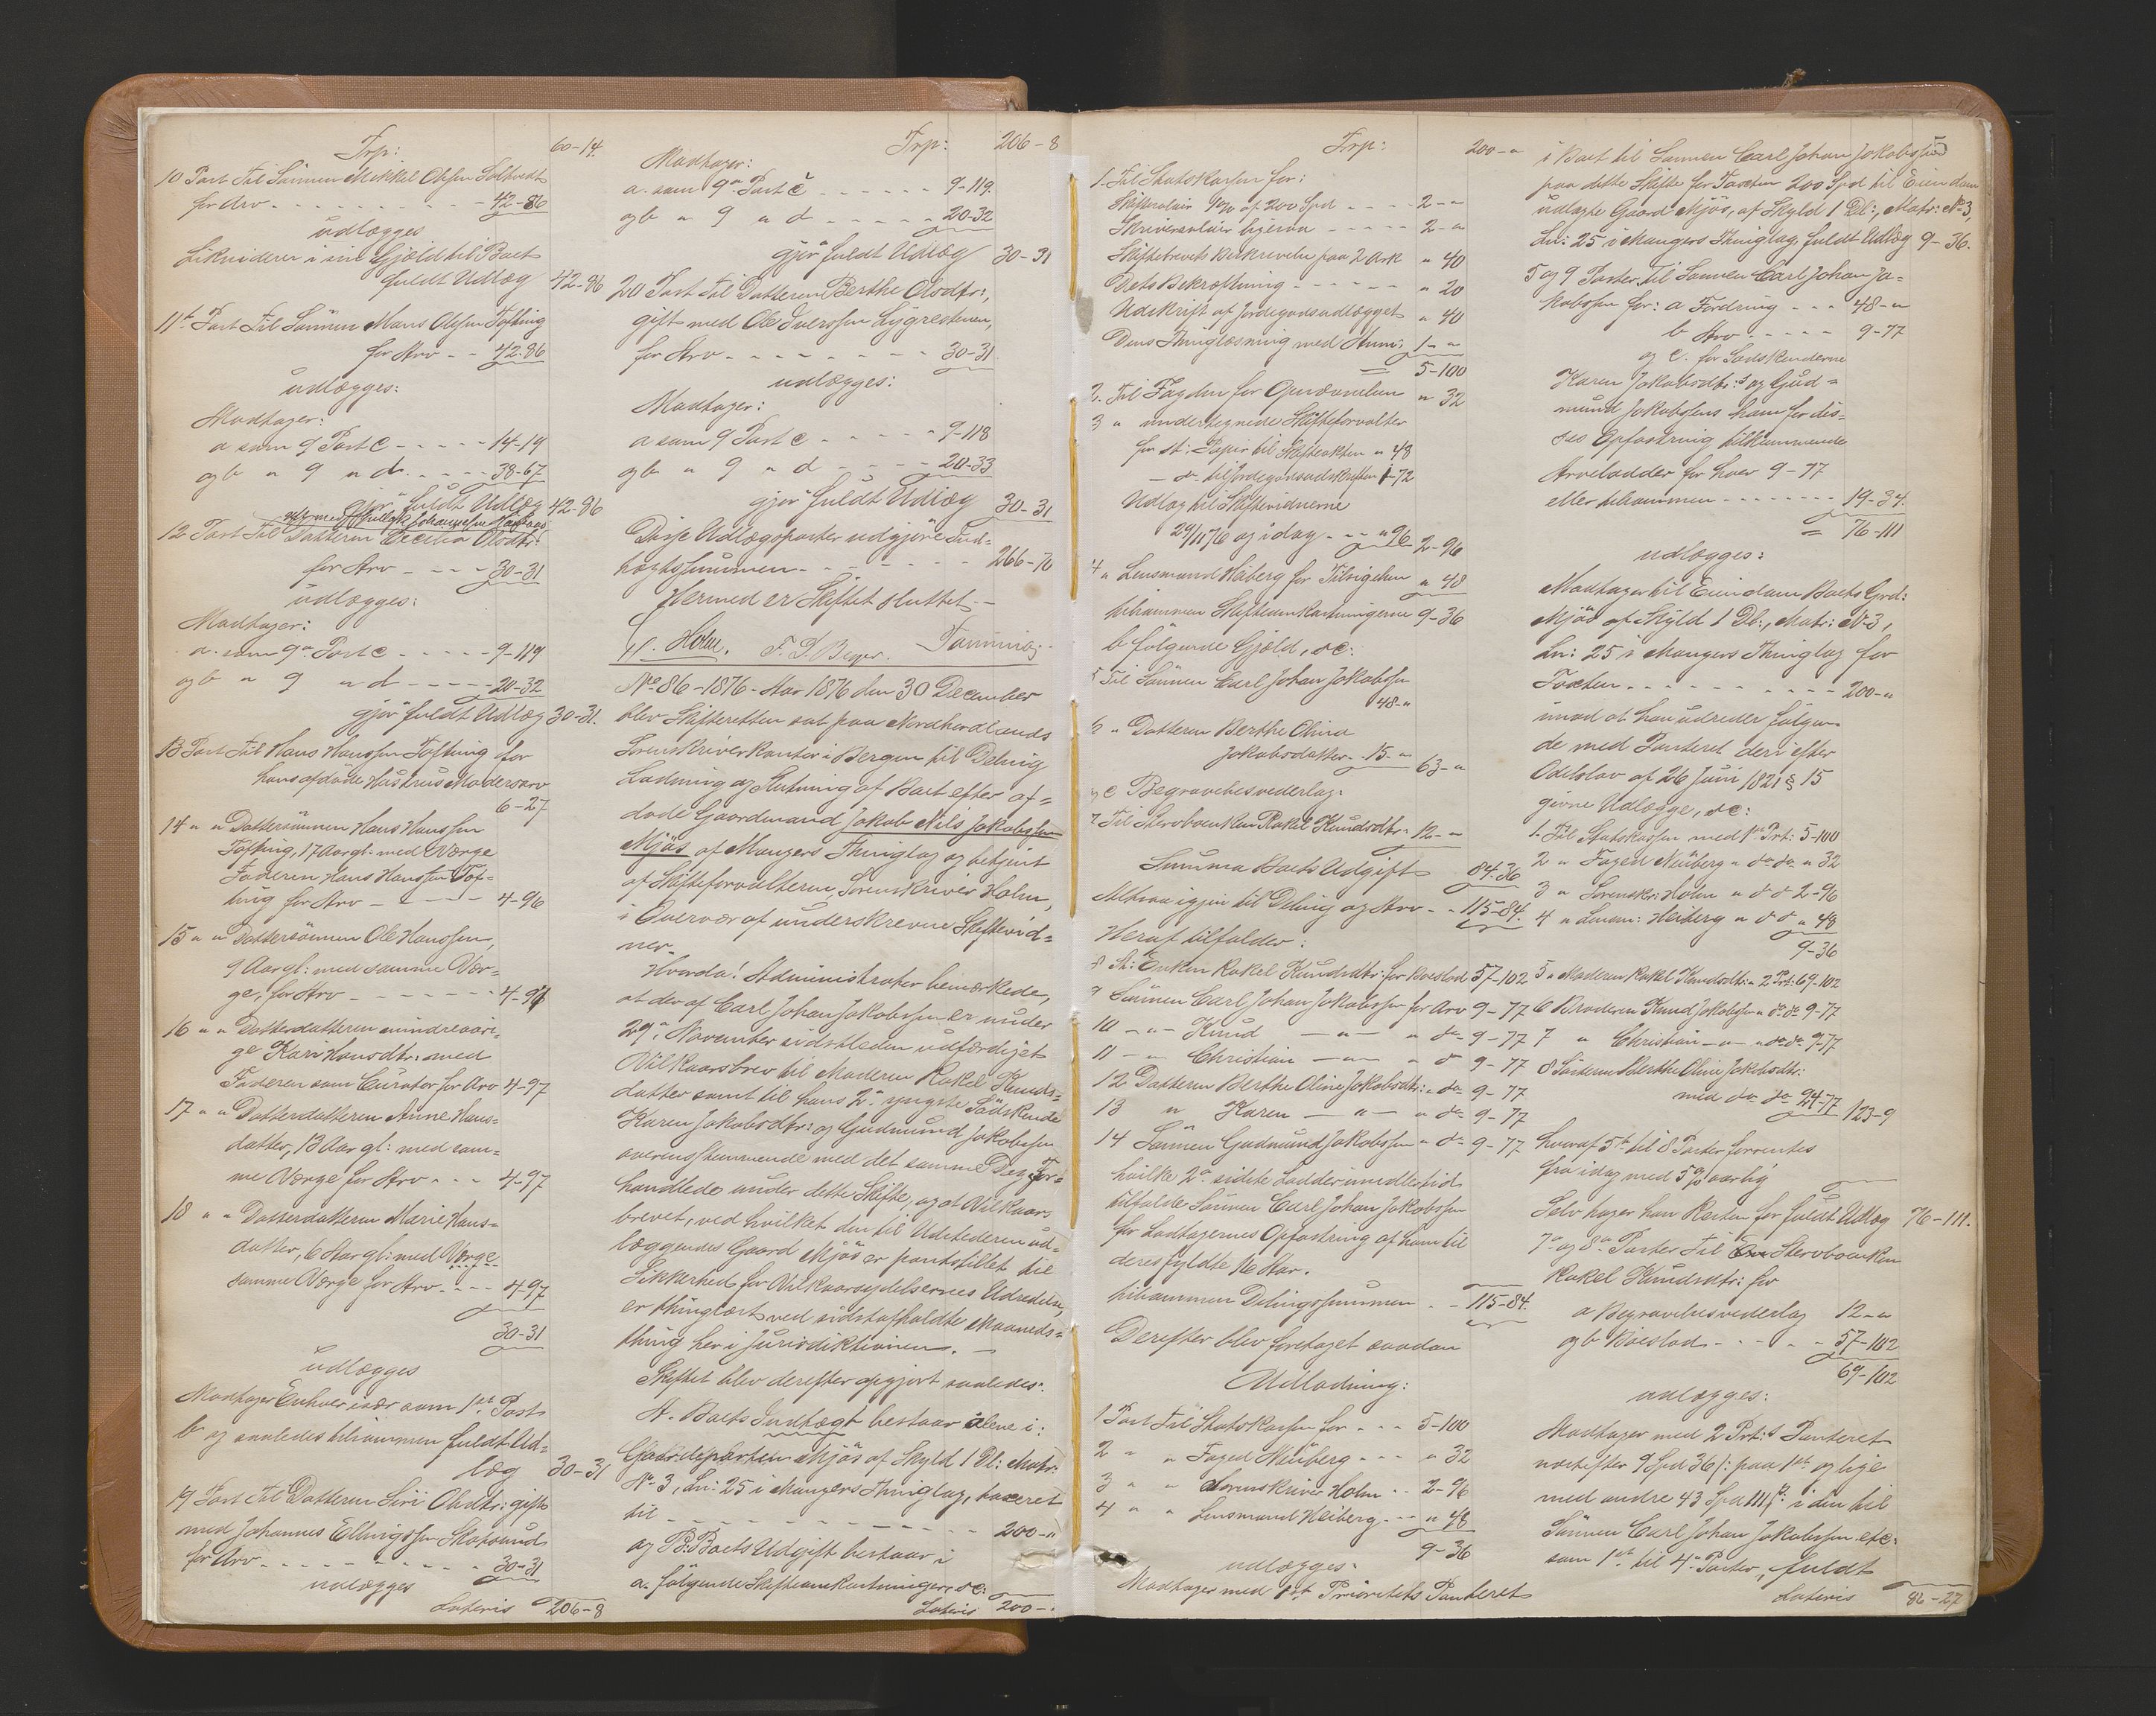 Trp: 60-14.
10 Part Til Sönnen Mikkel Olsen Soltvedt
for Arv - - - - - - - 42-86
udlægges
Likviderer i sin Gjæld til Boet
fuldt Udlæg 42-86
11te Part Til Sönnen Mons Olsen Tofting
for Arv - - 42-86
udlægges:
Modtager:
a som 9 Part c - - - - - 14-19
og b " 9 " d. - - - - 38-67
gjör fuldt Udlæg 42-86
12 Part Til Datteren Cecilia Olsdtr:
for Arv - - - - 30-31
udlægges:
Modtager:
a. som 9de Part c - - - - - 9-119
og b " 9 " d - - - - 20-32
gjör fuldt Udlæg 30-31.
13 Part Til Hans Hanssen Tofting for
hans afdöde Hustrus Modersarv
6-27
14 " " Dattersönnen Hans Hanssen
Tofting, 17 Aar gl: med Værge
Faderen Hans Hanssen Tof-
ting for Arv - - - - - 4-96
15 " " Dattersönnen Ole Hanssen,
9 Aar gl: med samme Vær-
ge, for Arv - - - - - - - 4-97
16 " " Datterdatteren mindreaari-
ge Kari Hansdtr: med
Faderen som Curator for Arv 4-97
17 " " Datterdatteren Anne Hans-
datter, 13 Aar gl: med sam-
me Værge for Arv - - - 4-97
18 " " Datterdatteren Marie Hans-
datter, 6 Aar gl: med Værge
samme Værge for Arv - - - - 4-97
30-31
udlægges
Modtager Enhver især som 1ste Part
b og saaledes tilsammen fuldt Ud-
læg 30-31
19 Part Til Datteren Siri Olsdtr: gift
med Johannes Ellingsen Skotsund
for Arv - - - - - - - - - 30-31
udlægges
Lateris 206-8
Trp: 206-8
Modtager:
a. som 9de Part c - - - - - - 9-119.
og b " 9 " d - - - - - 20-32
gjör fuldt Udlæg 30-31
20 Part Til Datteren Berthe Olsdtr:,
gift med Ole Iverssen Lygrestenen,
for Arv - - - - - - - - 30-31
udlægges:
Modtager:
a som 9 Part c - - - - - 9-118
og b " 9 " d - - - - 20-33
gjör fuldt Udlæg 30-31
Disse Udlægsparter udgjöre Ind-
tægtssummen - - - - - - - 266-70
Hermed er Skiftet sluttet. -
Holm. F. D. Beyer.
No 86-1876. Aar 1876 den 30 December
blev Skifteretten sat paa Nordhordlands
Sorenskriverkontor i Bergen til Deling
Lodning og Slutning af Boet efter af-
döde Gaardmand Jakob Nils Jakobssen
Mjös af Mangers Thinglag og betjent
af Skifteforvalteren, Sorenskriver Holm,
i Overvær af underskrevne Skiftevid-
ner.
Hvorda! Administrator bemærkede,
at der af Carl Johan Jakobssen er under
29de November sidstleden udfærdiget
Vilkaarsbrev til Moderen Rakel Knuds-
datter samt til hans 2de yngste Södskende
Karen Jakobsdtr: og Gudmund Jakobssen
overensstemmende med det samme Desfor-
handlede under dette Skifte, og at Vilkaars-
brevet, ved hvilket den til Udstederen ud-
læggendes Gaard Mjös er pantstillet til
Sikkerhed for Vilkaarsydelsernes Udredelse,
er thinglæst ved sidstafholdte Maaneds-
thing her i Jurisdiktionen. -
Skiftet blev derefter opgjort saaledes:
A. Boets Indtægt bestaar alene i:
Gaardeparten Mjös af Skyld 1 Dl: Matr:
No 3, Ln: 25 i Mangers Thinglag, taxeret
til - - - - - - - - - - - - 200-"
og B: Boets Udgift bestaar i
a. fölgende Skifteomkostninger, sc:
Lateris 200-"
Trp: 200-"
1. Til Statskassen for:
Skiftesalair 1 % af 200 Spd - - - - 2-"
Skriversalair ligesaa - - - - - 2-"
Skiftebrevets Beskrivelse paa 2 Ark " 40
Dets Bekræftning - - - - - - " 20
Udskrift af Jordegodsudlægget " 40
Dens Thinglæsning med Stem: 1-"
5-100
2. Til Fogden for Opnævnelsen " 32
3 " undertegnede Skifteforvalter
for st: Papir til Skifteakten " 48
- do til Jordegodsudskriften 1-72
Udlæg til Skiftevidnerne
29/11 76 og idag - - - " 96 2-96
4 " Lensmand Heiberg for Tilsigelsen " 48
tilsammen Skifteomkostningerne 9-36
b fölgende Gjæld, sc:
5 Til Sönnen Carl Johan Jakobssen
48-"
6 " Datteren Berthe Olina
Jakobsdatter - - 15-" 63-"
og c Begravelsesvederlag:
7 Til Stervboenken Rakel Knudsdtr: 12-"
Summa Boets Udgift 84-36
Altsaa igjen til Deling og Arv - - 115-84.
Heraf tilfalder:
8 St: Enken Rakel Knudsdtr: for Boeslod 57-102
9 Sönnen Carl Johan Jakobssen for Arv 9-77
10 -"- Knud -"- " do - 9-77
11 -"- Christian -"- " do 9-77
12 Datteren Berthe Oline Jakobsdtr: " do - 9-77
13 " Karen -"- " do - 9-77
14 Sönnen Gudmund Jakobssen " do - 9-77
hvilke 2de sidste Lodder imidlertid
tilfalde Sönnen Carl Johan Jakobssen
for Lodtagernes Opfostring af ham til
deres fyldte 16 Aar.
tilsammen Delingssummen - - 115-84.
Derefter blev foretaget saadan
Udlodning:
1 Part Til Statskassen for - - - 5-100
2 " " Foged Müberg - - - " 32
3 " " Sorenskriver Holm - - 2-96
4 " " Lensmand Heiberg - - - " 48
9-36
udlægges:
Modtager med 1ste Prioritets Panteret
5
i Boet til Sönnen Carl Johan Jakobssen
paa dette Skifte for Taxten 200 Spd til Eiendom
udlagte Gaard Mjös, af Skyld 1 Dl:, Matr: No 3,
Ln: 25 i Mangers Thinglag, fuldt Udlæg 9-36.
5 og 9 Parter Til Sönnen Carl Johan Ja-
kobssen for: a Fordring - - - 48-"
b Arv - - - - - 9-77
og c. for Södskenderne
Karen Jakobsdtr:s og Gud-
mund Jakobssens ham for dis-
ses Opfostring tilkommende
Arvelodder for hver 9-77
eller tilsammen - - - - - - - - 19-34
76-111
udlægges:
Modtager til Eiendom Boets Grd:
Mjös af Skyld 1 Dl:, Matr: No 3,
Ln: 25 i Mangers Thinglag for
Taxten - - - - - - - - - - 200-"
imod at han udreder fölgen-
de med Panteret deri efter
Odelslov af 26 Juni 1821 § 15
givne Udlægge, sc:
1. Til Statskassen med 1ste Prt: 5-100
2 " Foged Müberg " do do " 32
3 " Sorenskr: Holm " do do 2-96
4 " Lensm: Heiberg " do do " 48
9-36
5 " Moderen Rakel Knudsdtr: " 2 Prt: 69-102
6 Broderen Knud Jakobssen " do do 9-77
7 " Christian -"- " do do 9-77
8 Sösteren Berthe Oline Jakobsdtr:
med do do 24-77 123-9
hvoraf 5te til 8 Parter forrentes
fra idag med 5 % aarlig
Selv tager han Resten for fuldt Udlæg 76-111.
7de og 8de Parter Til Stervboenken
Rakel Knudsdtr: for
a Begravelsesvederlag 12-"
og b Boeslod - - - - - 57-102
69-102
udlægges:
Modtager med 2 Prt:s Panteret
næstefter 9 Spd 36 s: paa 1ste og lige
med andre 43 Spd 111 s: i den til
Sönnen Carl Johan Jakobssen etc:
som 1ste til 4de Parter, fuldt
Lateris 86-27